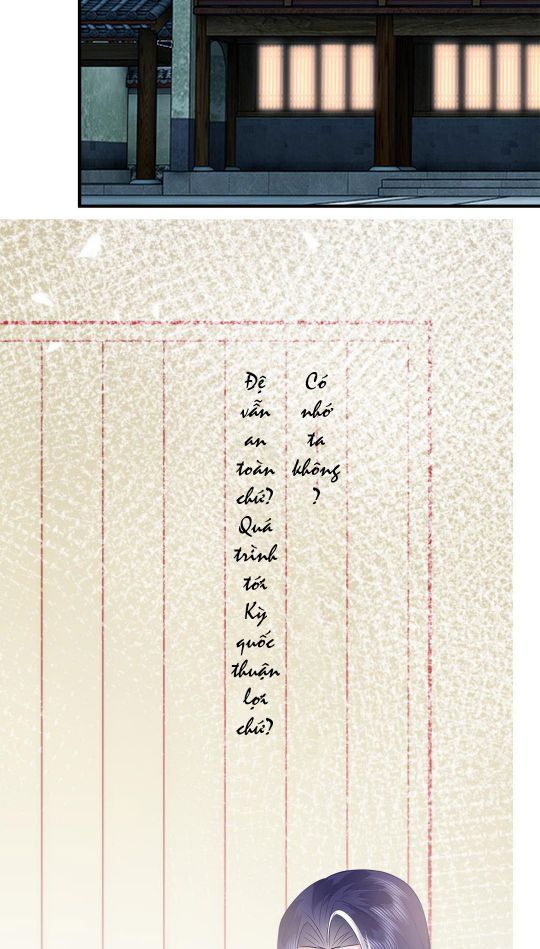 Có nhớ ta không?
Đệ vẫn an toàn chứ? Quá trình tới Kỳ quốc thuận lợi chứ?